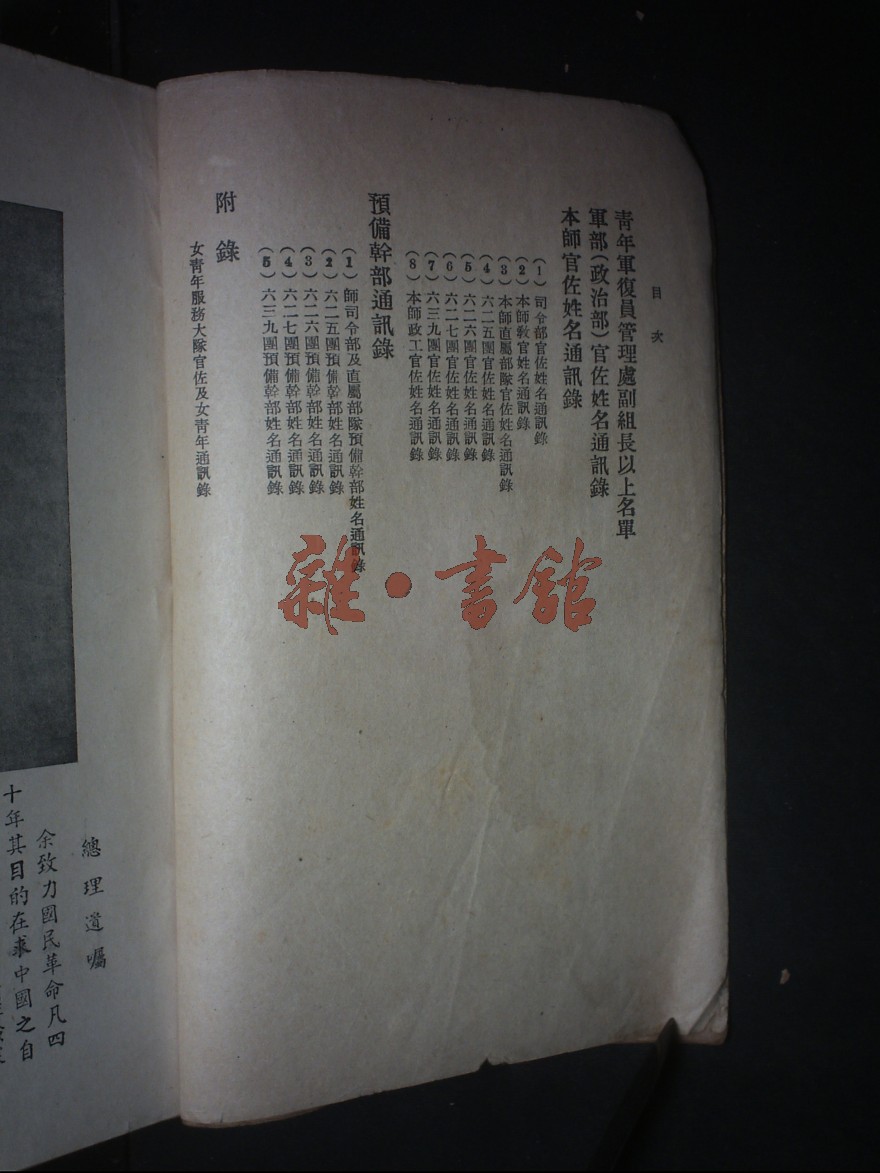 目次
青年軍復員管理處副組長以上名單
軍部(政治部)官佐姓名通訊錄
本師官佐姓名通訊錄
(1)司令部官佐姓名通訊錄
(2)本師教官姓名通訊錄
(3)本師直屬部隊官佐姓名通訊錄
(4)六二五團官佐姓名通訊錄
(5)六二六團官佐姓名通訊錄
(6)六二七團官佐姓名通訊錄
(7)六三九團官佐姓名通訊錄
(8)本師政工官佐姓名通訊錄
預備幹部通訊錄
(1)師司令部及直屬部隊預備幹部姓名通訊錄
(2)六二五團預備幹部姓名通訊錄
(3)六二六團預備幹部姓名通訊錄
(4)六二七團預備幹部姓名通訊錄
(5)六三九團預備幹部姓名通訊錄
附錄
女青年服務大隊官佐及女青年通訊錄
總理遺囑
余致力國民革命凡四
十年其目的在求中國之自
雜·書館